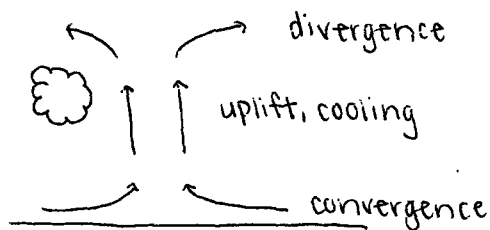 divergence
uplift, cooling
convergence